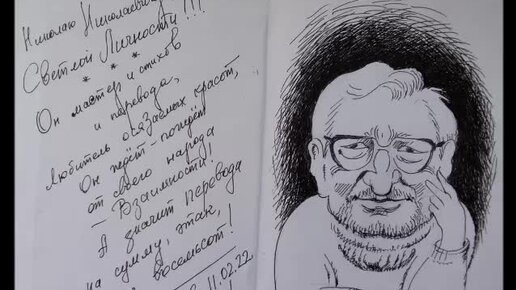 Николаю Николаевичу
Светлой Личности!!!
* * *
Он мастер и стихов
и перевода,
Любитель осязаемых красот,
Он ждёт – пождёт
от своего народа
– Взаимности!
А значит Перевода
на сумму, этак,
восемьсот!
11.02.22